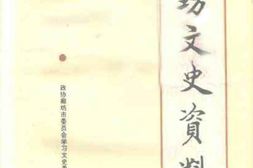 坊文史資料
政协廊坊市委员会学习文史